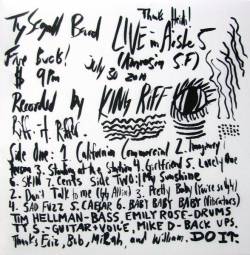 Ty Segall Band
Thanks Heidi!
LIVE in Aisle 5
Five Bucks!
$ 9pm
July 30 2010
(Amnesia S.F)
Recorded by KING RIFF
Riff it Riff
Side One: 1 California Commercial 2. Imaginary
Person 3. Standing at the station 4. Girlfriend 5. Lovely One
6. SKIN 7. Cents Side TWO: My Sunshine
2. Don't talk to me (GG Allin) 3. Pretty Baby (
4. SAD FUZZ 5. CAESAR 6. BABY BABY BABY (Vibrators)
TIM HELLMAN-BASS, EMILY ROSE-DRUMS
TY S.-GUITAR+VOICE, MIKE D-BACK UPS.
Thanks Eric, Bob, Mikah, and William. DO IT.